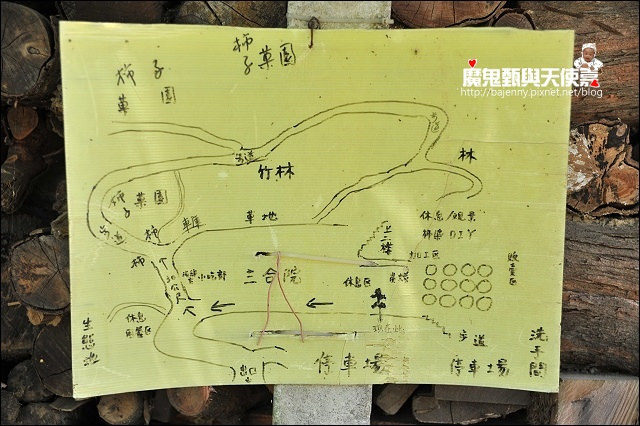 柿子菓園
柿子菓園
魔鬼甄與天使嘉
http://bajenny.pixnet.net/blog
步道
竹林
步道
林
柿子菓園
車庫
草地
休息/風景
柿染DIY
加工區
上二樓
步道
柿
柿
三合院
小吃部
休息區
曬柿區
休息
生態池
步道
洗手間
出口
停車場
停車場